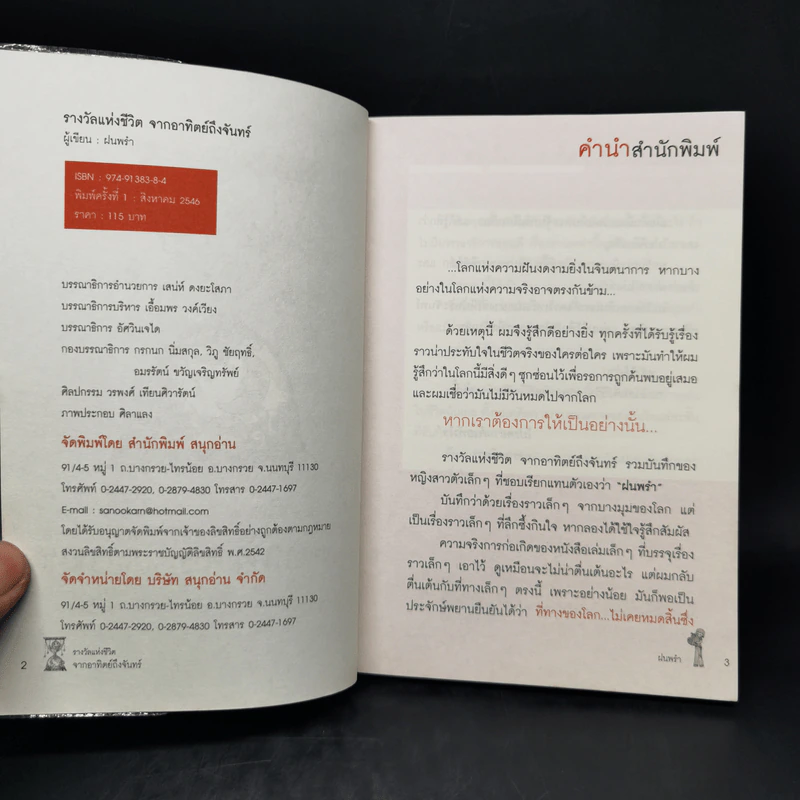 รางวัลแห่งชีวิต จากอาทิตย์ถึงจันทร์
ผู้เขียน : ฝนพรำ
ISBN : 974-91383-8-4
พิมพ์ครั้งที่ 1 : สิงหาคม 2546
ราคา : 115 บาท
บรรณาธิการอำนวยการ เสน่ห์ ดงยะโสภา
บรรณาธิการบริหาร เอื้อมพร วงค์เวียง
บรรณาธิการ อัศวินเจได
กองบรรณาธิการ กรกนก นิ่มสกุล, วิภู ชัยฤทธิ์,
อมรรัตน์ ขวัญเจริญทรัพย์
ศิลปกรรม วรพงศ์ เทียนศิวารัตน์
ภาพประกอบ ศิลาแลง
จัดพิมพ์โดย สำนักพิมพ์ สนุกอ่าน
91/4-5 หมู่ 1 ถ.บางกรวย-ไทรน้อย อ.บางกรวย จ.นนทบุรี 11130
โทรศัพท์ 0-2447-2920, 0-2879-4830 โทรสาร 0-2447-1697
E-mail : sanookarn@hotmail.com
โดยได้รับอนุญาตจัดพิมพ์จากเจ้าของลิขสิทธิ์อย่างถูกต้องตามกฎหมาย
สงวนลิขสิทธิ์ตามพระราชบัญญัติลิขสิทธิ์ พ.ศ.2542
จัดจำหน่ายโดย บริษัท สนุกอ่าน จำกัด
91/4-5 หมู่ 1 ถ.บางกรวย-ไทรน้อย อ.บางกรวย จ.นนทบุรี 11130
โทรศัพท์ 0-2447-2920, 0-2879-4830 โทรสาร 0-2447-1697
2
รางวัลแห่งชีวิต
จากอาทิตย์ถึงจันทร์
คำนำสำนักพิมพ์
...โลกแห่งความฝันงดงามยิ่งในจินตนาการ หากบาง
อย่างในโลกแห่งความจริงอาจตรงกันข้าม...
ด้วยเหตุนี้ ผมจึงรู้สึกดีอย่างยิ่ง ทุกครั้งที่ได้รับรู้เรื่อง
ราวน่าประทับใจในชีวิตจริงของใครต่อใคร เพราะมันทำให้ผม
รู้สึกว่าในโลกนี้มีสิ่งดีๆ ซุกซ่อนไว้เพื่อรอการถูกค้นพบอยู่เสมอ
และผมเชื่อว่ามันไม่มีวันหมดไปจากโลก
หากเราต้องการให้เป็นอย่างนั้น...
รางวัลแห่งชีวิต จากอาทิตย์ถึงจันทร์ รวมบันทึกของ
หญิงสาวตัวเล็กๆ ที่ชอบเรียกแทนตัวเองว่า "ฝนพรำ"
บันทึกว่าด้วยเรื่องราวเล็กๆ จากบางมุมของโลก แต่
เป็นเรื่องราวเล็กๆ ที่ลึกซึ้งกินใจ หากลองได้ใช้ใจรู้สึกสัมผัส
ความจริงการก่อเกิดของหนังสือเล่มเล็กๆ ที่บรรจุเรื่อง
ราวเล็กๆ เอาไว้ ดูเหมือนจะไม่น่าตื่นเต้นอะไร แต่ผมกลับ
ตื่นเต้นกับที่ทางเล็กๆ ตรงนี้ เพราะอย่างน้อย มันก็พอเป็น
ประจักษ์พยานยืนยันได้ว่า ที่ทางของโลก...ไม่เคยหมดสิ้นซึ่ง
ฝนพรำ
3